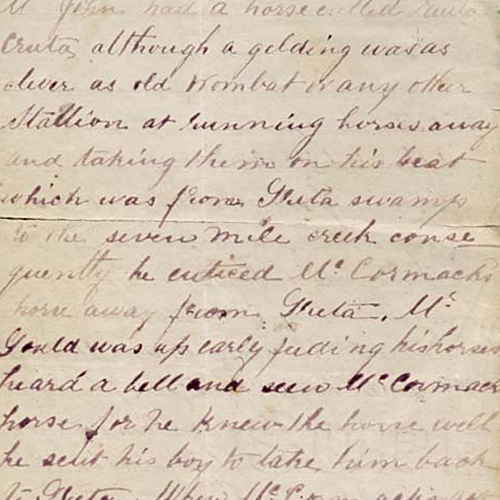 Mr John had a horse called Ruita
Cruta, although a gelding was as
clever as old Wombat or any other
Stallion at running horses away
and taking them on his beat
which was from Greta swamp
to the seven mile creek conse
quently he enticed McCormacks
horse away from Greta. Mr
Gould was up early feeding his horses
heard a bell and seen McCormack
horse for he knew the horse well
he sent his boy to take him back
to Greta. When Mc